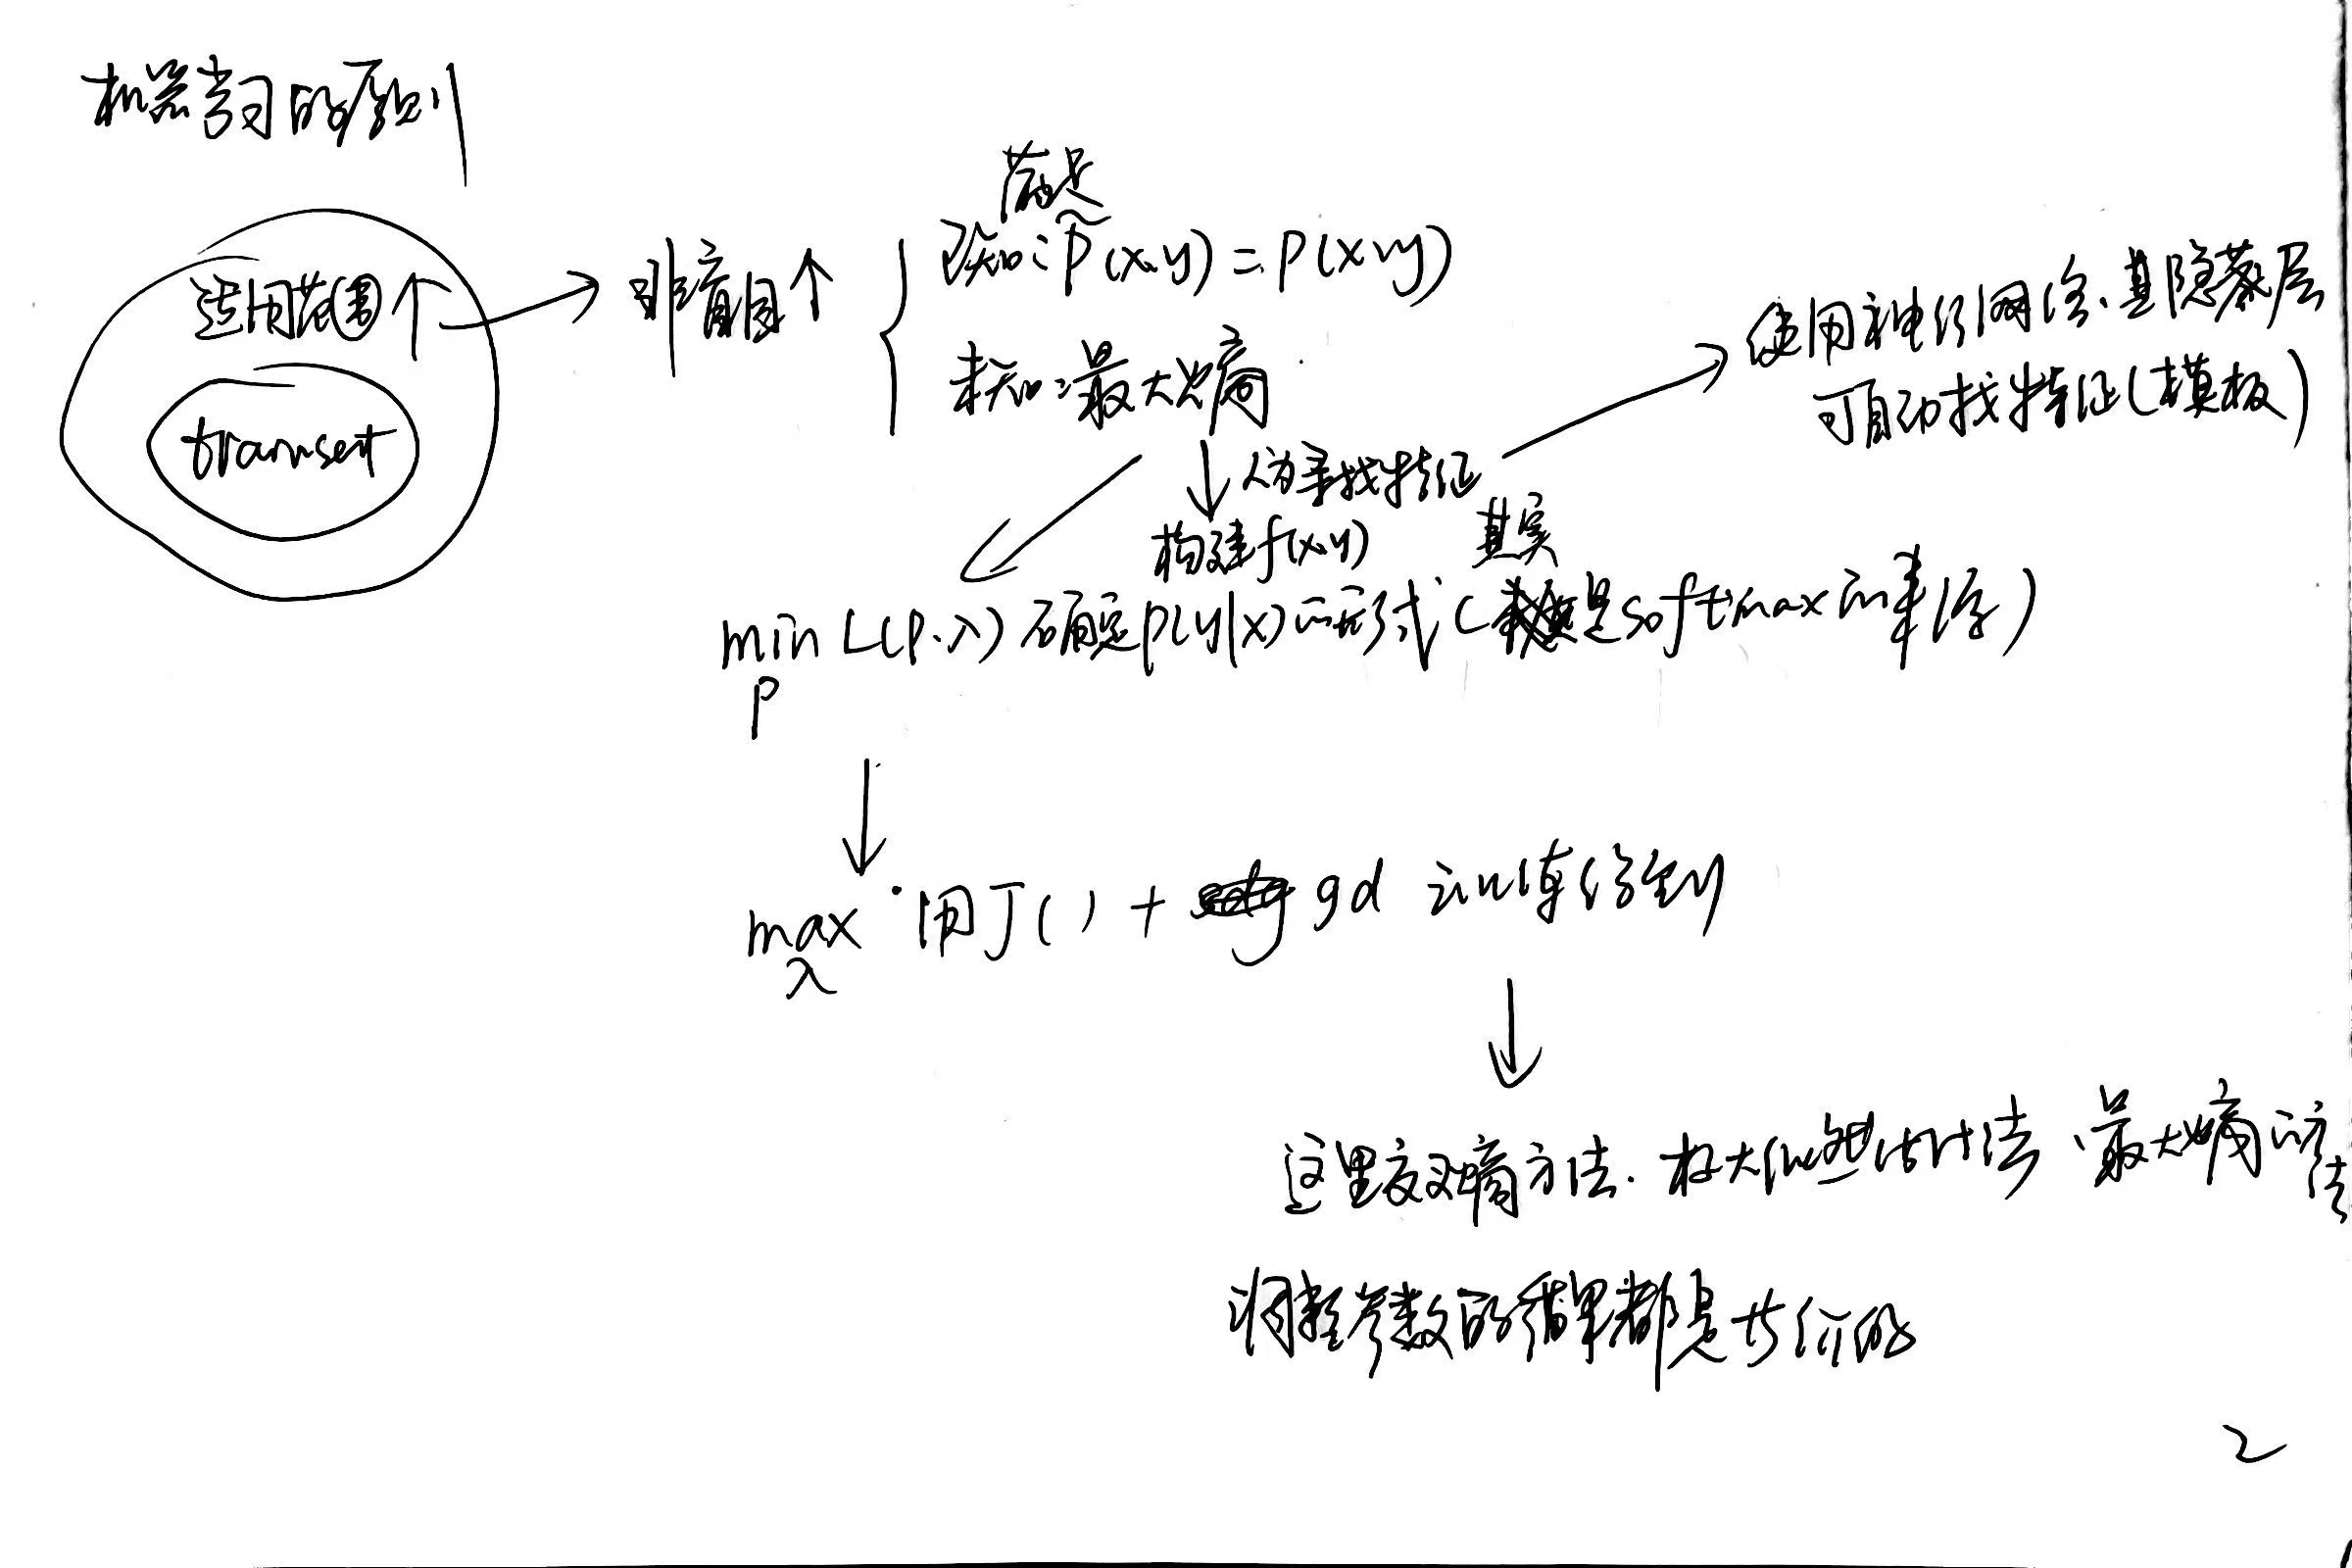 机器学习的原则
适用范围↑
trainset
非盲目↑
满足
已知:p̃(x,y)=p(x,y)
未知:最大熵
人为寻找特征
构建f(x,y)
使用神经网络、其隐藏层
可自动找特征(模板)
其实
min L(p,λ) 确定p(y|x)的形式(是softmax的事情)
p
max 用J()+ gd 训练得到
λ
这里交叉熵方法.极大似然估计法、最大熵的方法
调整参数的结果都是等价的
2